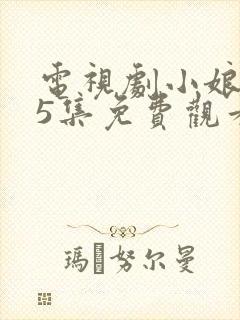 電視劇小娘
5集免費觀
瑪努尔曼